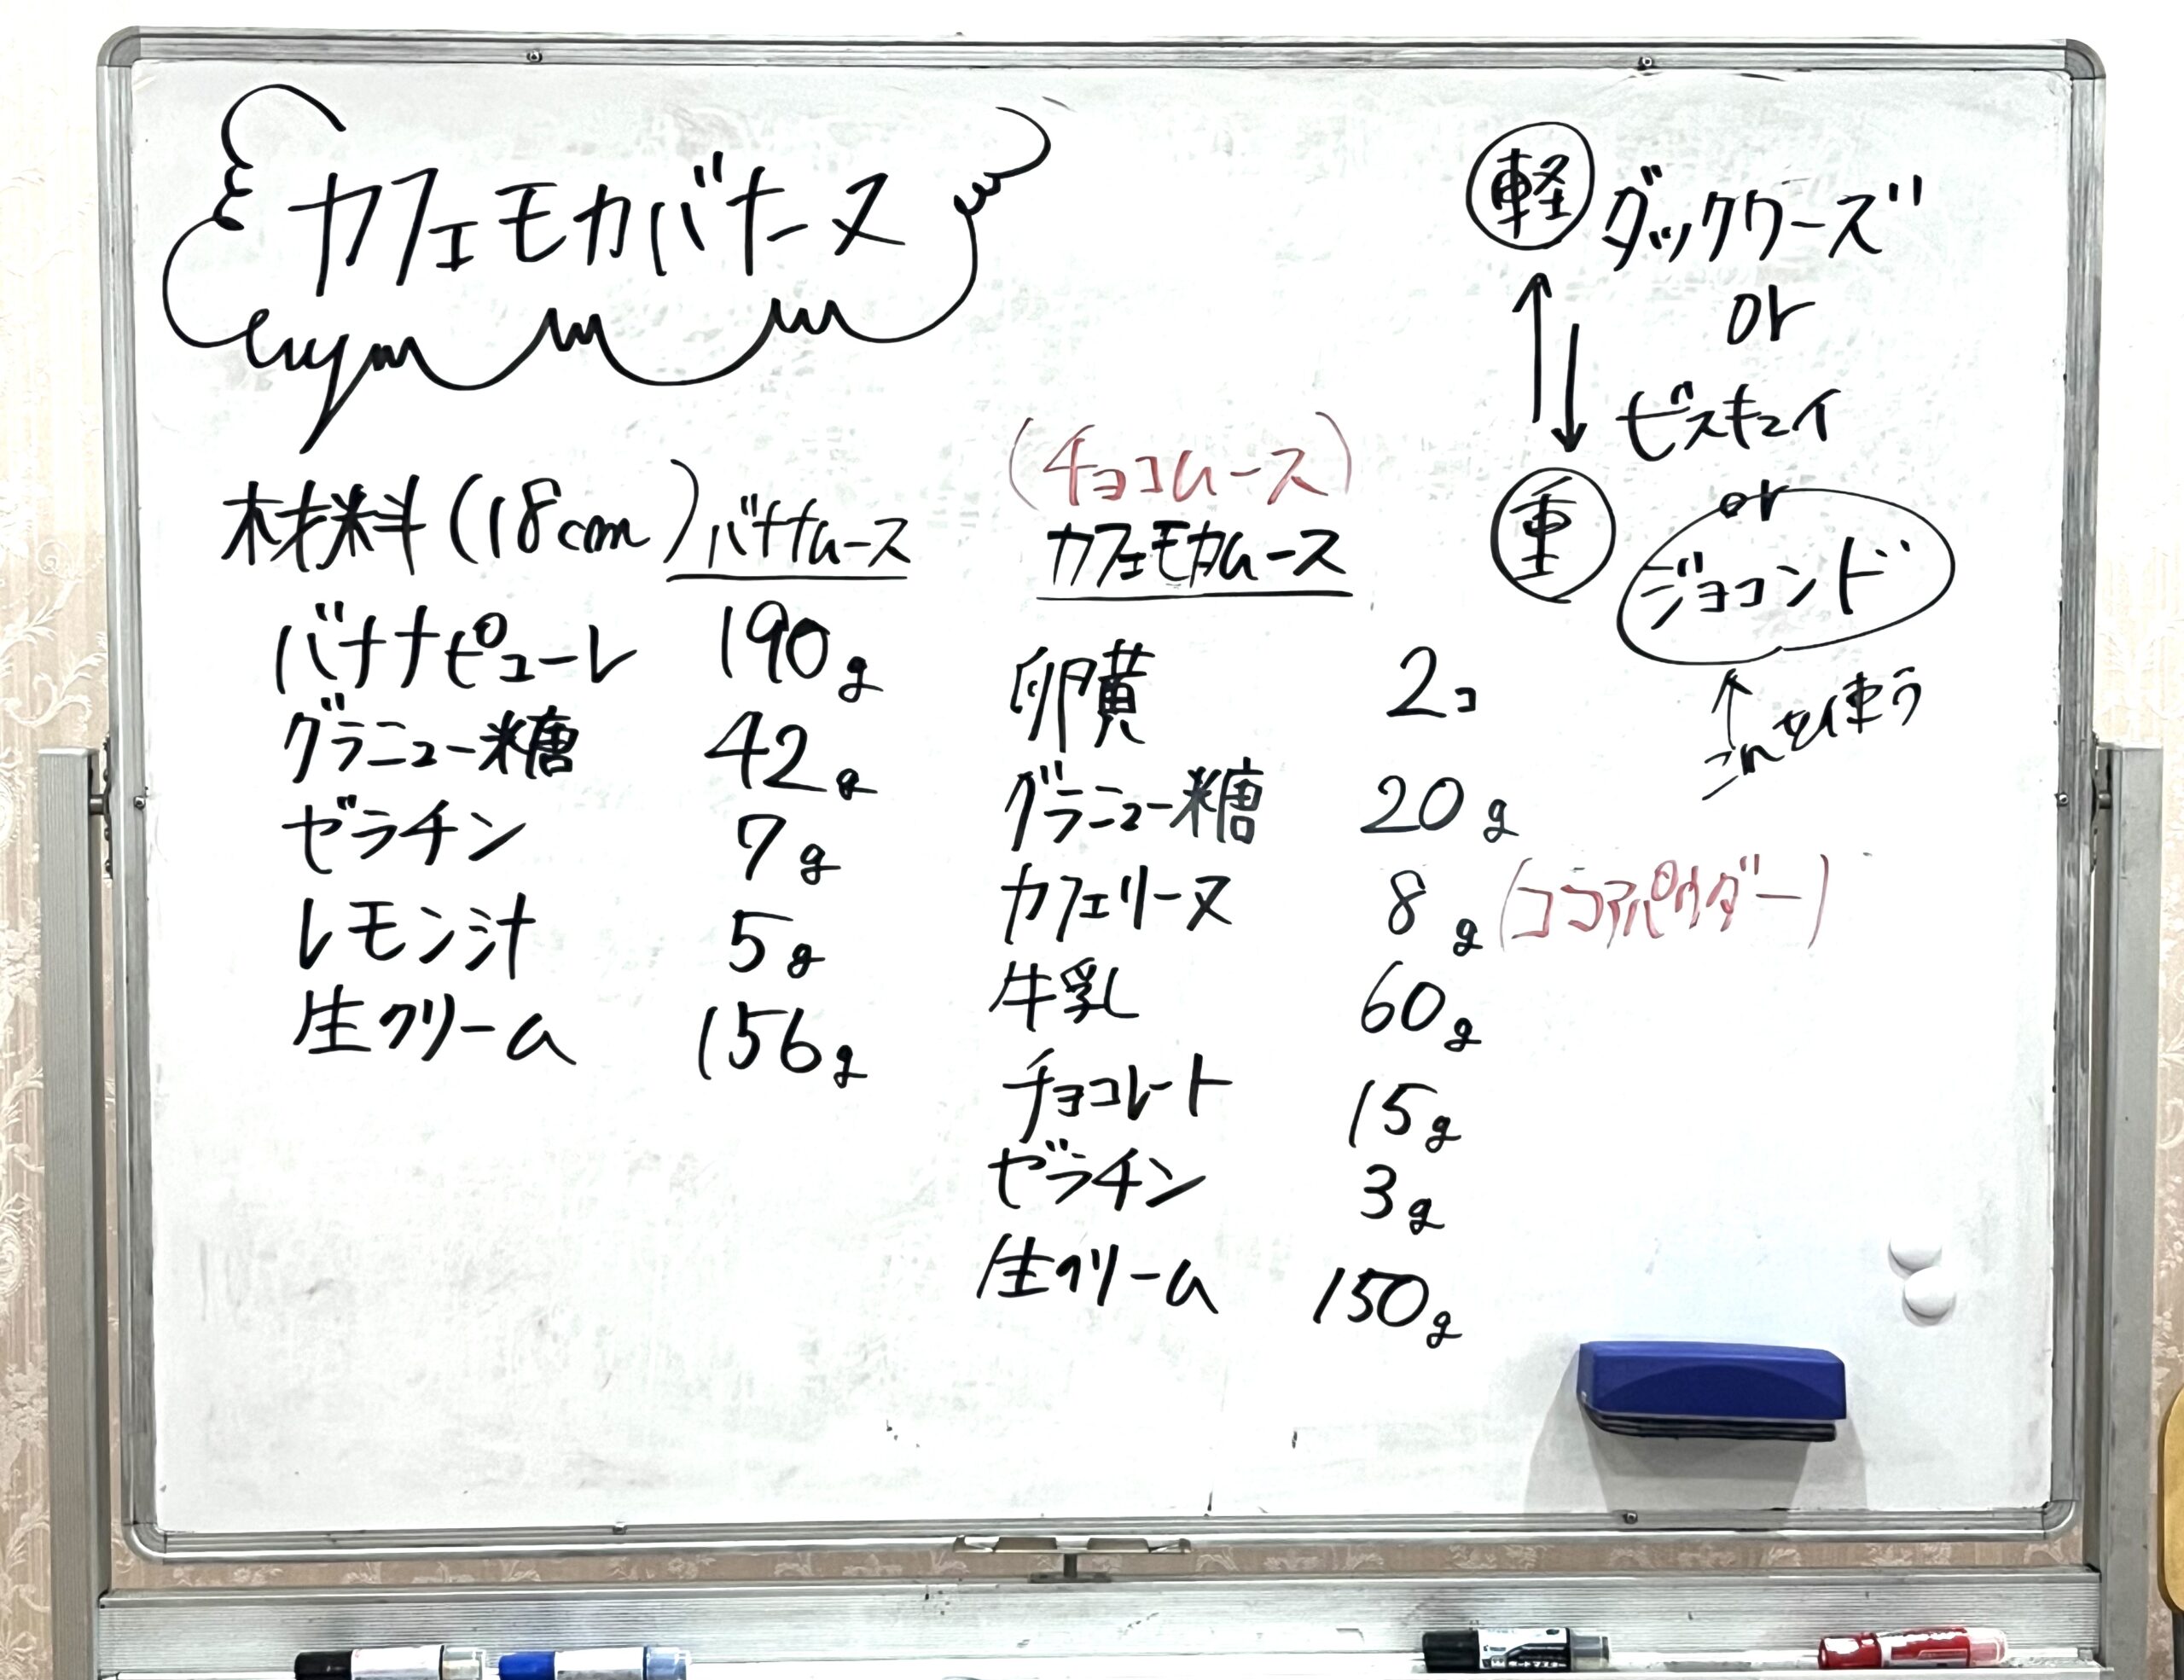 カフェモカバナーヌ
材料(18cm)
バナナムース
バナナピューレ 190g
グラニュー糖 42g
ゼラチン 7g
レモン汁 5g
生クリーム 156g
(チョコムース)
カフェモカムース
卵黄 2コ
グラニュー糖 20g
カフェリーヌ 8g (ココアパウダー)
牛乳 60g
チョコレート 15g
ゼラチン 3g
生クリーム 150g
軽 ダックワーズ
or
ビスキュイ
or
重 ジョコンド
これを使う